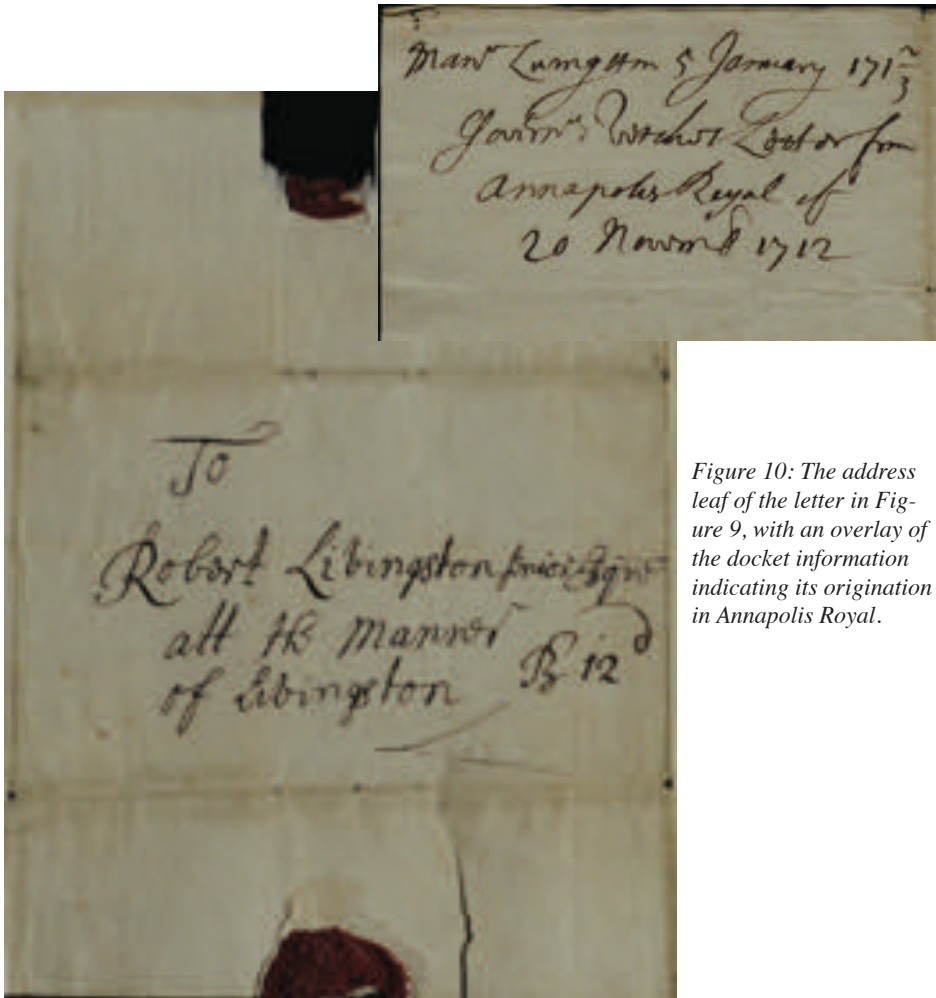 Manr Livingston 5 January 171 2/3
Govern Letter from
Annapolis Royal of
20 Novemb 1712
To
Robert Libingston Esqr
att the Manner
of Libingston
B 12d
Figure 10: The address
leaf of the letter in Fig-
ure 9, with an overlay of
the docket information
indicating its origination
in Annapolis Royal.